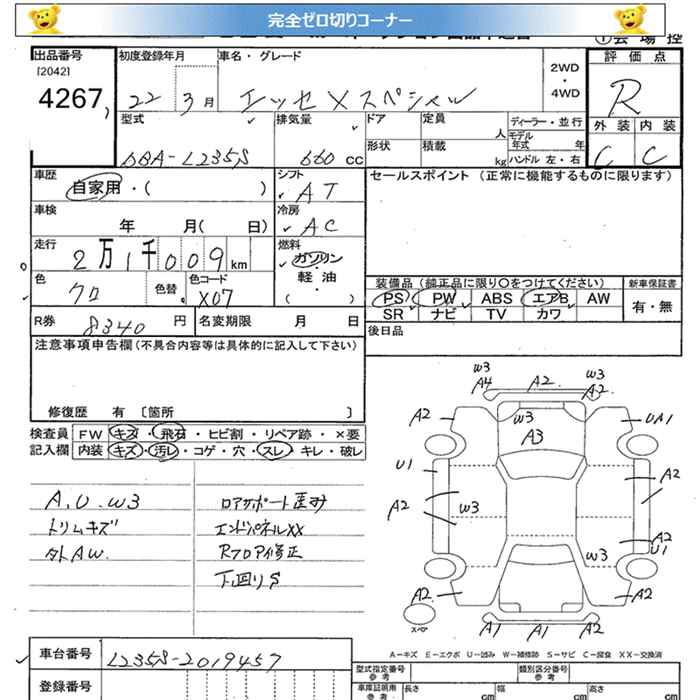 完全ゼロ切りコーナー
出品番号
[2042]
4267
初度登録年月
22年3月
車名・グレード
エッセ Xスペシャル
2WD
・
4WD
評価点
R
外装 内装
C C
型式
DBA-L235S
排気量
660 cc
ドア
形状
定員
人
積載
kg
ディーラー・並行
モデル年式 年
ハンドル 左・右
車歴
自家用・( )
シフト
AT
セールスポイント (正常に機能するものに限ります)
車検
年 月( 日)
冷房
AC
走行
2万1千009km
燃料
ガソリン
・
軽・油
( )
色
クロ
色替
色コード
X07
装備品(純正品に限り○をつけてください)
新車保証書
PS PW ABS エアB AW
有・無
SR ナビ TV カワ
R券 8340円
名変期限 月 日
後日品
注意事項申告欄(不具合内容等は具体的に記入して下さい)
修復歴 有〔箇所 〕
検査員記入欄
FW キズ・飛石・ヒビ割・リペア跡・×要
内装 キズ・汚レ・コゲ・穴・スレ・キレ・破レ
A.U.W3
トリムキズ
タトAW.
ロアサポート歪み
エンドパネルXX
Rフロア修正
下廻りS
W3
A4
A2
W3
A2
A2
W3
A3
UA1
U1
A2
W3
A2
A2
U1
W3
A2
A1
A1
A2
A2
スペア
A－キズ E－エクボ U－凹み W－補修跡 S－サビ C－腐食 XX－交換済
車台番号
L235S-2019457
登録番号
型式指定番号
参考
類別区分番号
参考
車庫証明用
参考
長さ cm
幅 cm
高さ cm